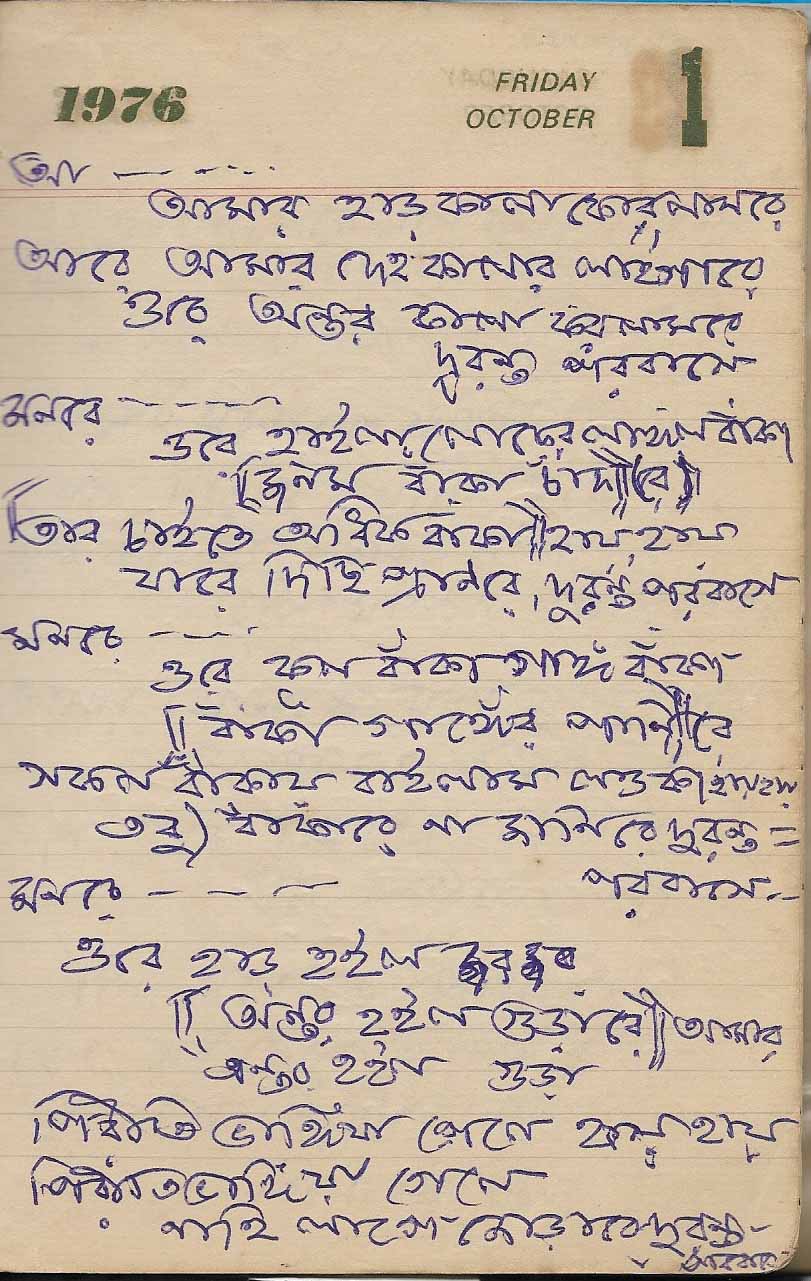 1976
FRIDAY
OCTOBER
1
আ - - - - - -
আমার হাড় কালা করলামরে
আরে আমার দেহ কালার লাইগারে
ওরে অন্তর কালা করলামরে
দুরন্ত পরবাসে
মনরে - - - - -
ওরে হাইলা লোকের লাঙ্গল বাঁকা
॥জনম বাঁকা চাঁদ॥(রে)॥
॥তার চাইতে অধিক বাঁকা॥হায়, হায়
যারে দিছি প্রানরে, দুরন্ত পরবাসে
মনরে - - - -
ওরে কূল বাঁকা গাঙ্গ বাঁকা
॥বাঁকা গাঙ্গের পানি॥রে
সকল বাঁকায় বাইলাম নৌকা হায় হায়
তবু বাঁকারে না জানিরে দুরন্ত =
পরবাসে -
মনরে - - -
ওরে হাড় হইল জর জর
॥অন্তর হইল গুড়ারে॥আমার
অন্তর হইল গুড়া
পিরীতি ভাঙ্গিয়া গেলে হায় হায়
পিরীতি ভাঙ্গিয়া গেলে
নাহি লাগে জোড়ারে দুরন্ত
পরবাসে